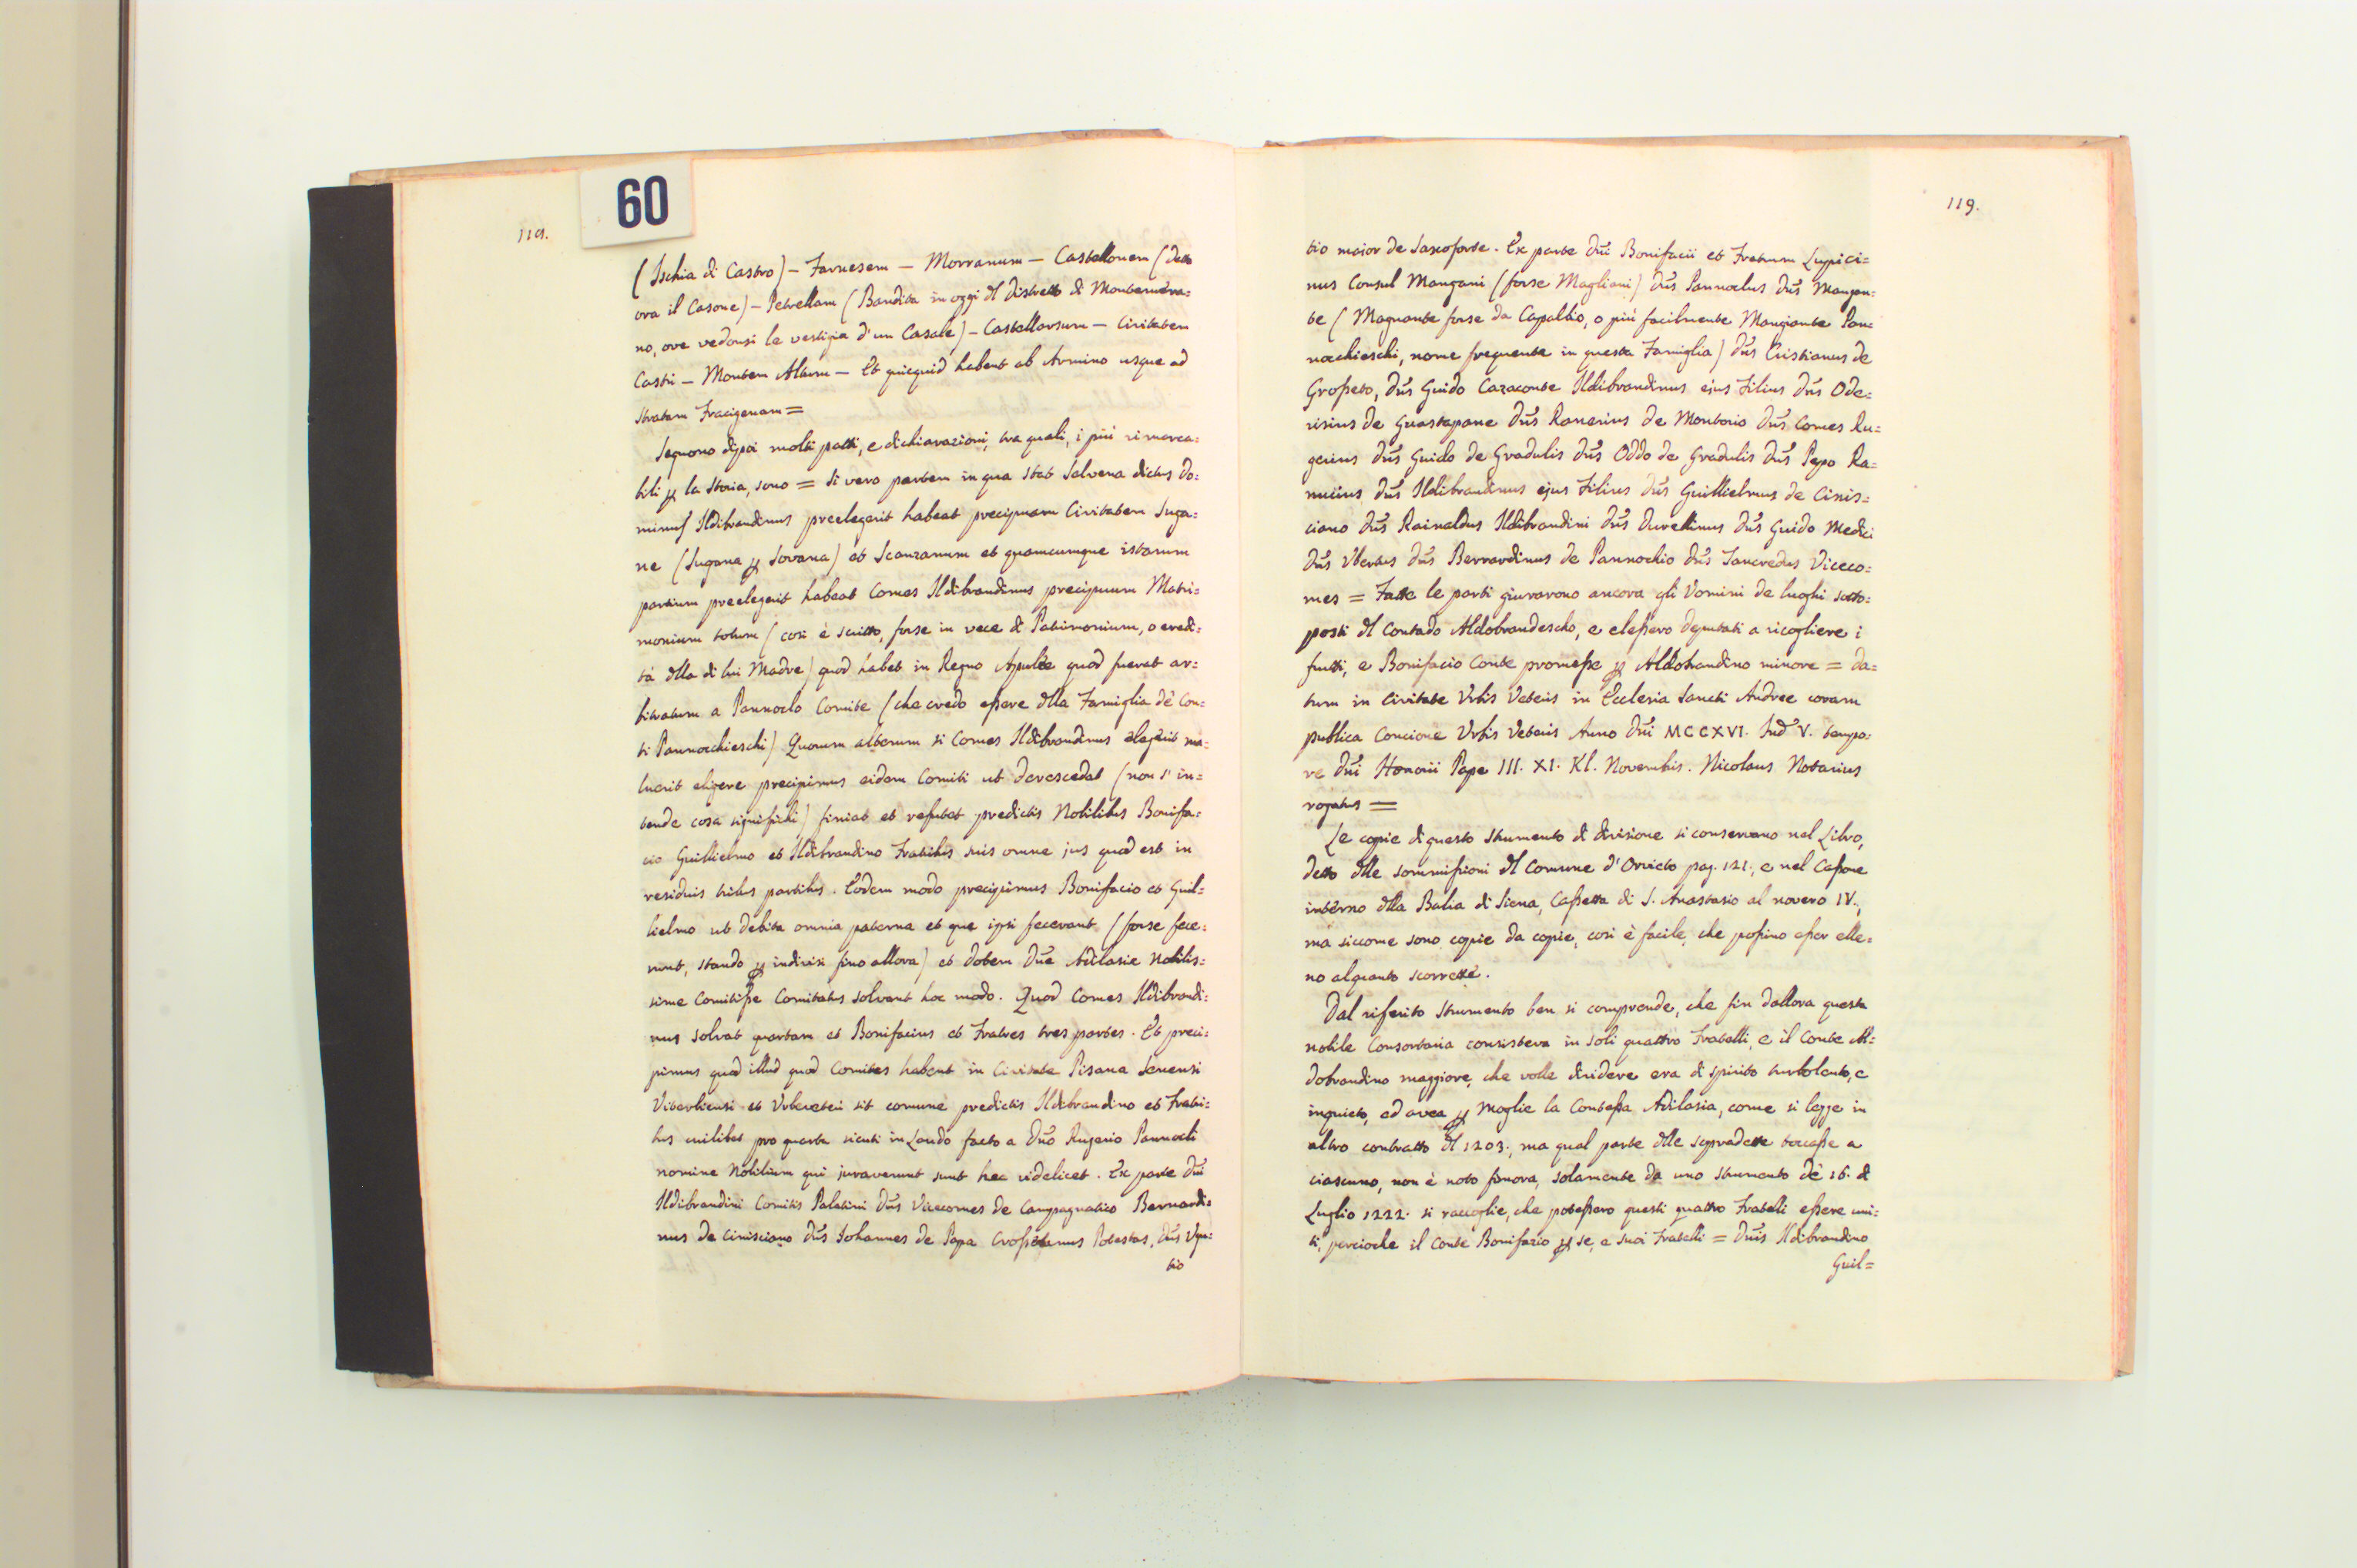 60
118.
(Ischia di Castro) – Farnesem – Morranum – Castellonem (detto
ora il Casone) – Petrellam (Bandita in oggi dl distretto di Montemera=
no, ove vedonsi le vestigia d'un Casale) – Castellarsum – Civitatem
Castri – Montem Altum – Et quicquid habent ab Armino usque ad
stratam Fracigenam =
Seguono dipoi molti patti, e dichiarazioni, tra quali, i più rimarca=
bili p la storia, sono = Si vero partem in qua stat Selvena dictus Do=
minus Ildibrandinus preelegerit habeat precipuam Civitatem Suga=
ne (Sugana p Sovana) et Scanzanum et quamcumque istarum
partium preelegerit habeat Comes Ildibrandinus precipuum Matri=
monium totum (così è scritto, forse in vece di Patrimonium, o eredi=
tà dlla di lui Madre) quod habet in Regno Apulee quod fuerat ar=
bitratum a Pannoclo Comite (che credo essere dlla Famiglia dè Con=
ti Pannocchieschi) Quorum alterum si Comes Ildibrandinus elegerit ma=
luerit eligere precipimus eidem Comiti ut derescedat (non s' in=
tende cosa significhi) finiat et refutet predictis Nobilibus Bonifa=
cio Guillielmo et Ildibrandino Fratribus suis omne jus quod est in
residuis tribus partibus. Eodem modo precipimus Bonifacio et Guil=
lielmo ut debita omnia paterna et que ipsi fecerant (forse fece=
runt, stando p indivisi fino allora) et dotem Dñe Adilasie nobilis=
sime Comitisse Comitatus solvant hoc modo. Quod Comes Ildibrandi=
nus solvat quartam et Bonifacius et Fratres tres partes. Et preci=
pimus quod illud quod Comites habent in Civitate Pisana Senensi
Viterbiensi et Urbeveteri sit comune predictis Ildibrandino et Fratri=
bus cuilibet pro quarta sicuti in Laudo facto a Dño Rugerio Pannocli
nomine Nobilium qui juraverunt sunt hec videlicet. Ex parte Dñi
Ildibrandini Comitis Palatini Dñs Vicecomes de Campagnatico Bernardi=
nus de Cinisciano Dñs Johannes de Papa Crossitanus Potestas, Dñs Ugu=
tio
119.
tio maior de Saxoforte. Ex parte Dñi Bonifacii et Fratrum Lupici=
nus Consul Mangani (forse Magliani) Dñs Pannoclus Dñs Mangan=
te (Magnante forse da Capalbio, o più facilmente Mangiante Pan=
nocchieschi, nome frequente in questa Famiglia) Dñs Cristianus de
Grosseto, Dñs Guido Cazaconte Ildibrandinus ejus Filius Dñs Ode=
risius de Guastapane Dñs Ranerius de Montorio Dñs Comes Ru=
gerius Dñs Guido de Gradulis Dñs Oddo de Gradulis Dñs Pepo Ra=
nucius Dñs Ildibrandinus ejus Filius Dñs Guillielmus de Cinis=
ciano Dñs Rainaldus Ildibrandini Dñs Durellinus Dñs Guido Medici
Dñs Ubertus Dñs Berrardinus de Pannochio Dñs Tancredus Viceco=
mes = Fatte le parti giurarono ancora gli Uomini de luoghi sotto=
posti dl Contado Aldobrandescho, e elessero deputati a ricogliere i
frutti, e Bonifacio Conte promesse p Aldobrandino minore = Da=
tum in Civitate Urbis Veteris in Ecclesia Sancti Andree coram
publica Concione Urbis Veteris Anno Dñi MCCXVI. Ind. V. tempo=
re Dñi Honorii Pape III. XI. Kl. Novembris. Nicolaus Notarius
rogatus =
Le copie di questo strumento di divisione si conservano nel Libro,
detto dlle sommissioni dl Comune d'Orvieto pag. 121., e nel Cassone
interno dlla Balia di Siena, Cassetta di S. Anastasio al novero IV.,
ma siccome sono copie da copie, così è facile, che possino esser elle=
no alquanto scorrette.
Dal riferito strumento ben si comprende, che fin dallora questa
nobile Consorteria consisteva in soli quattro Fratelli, e il Conte Al=
dobrandino maggiore, che volle dividere era di spirito turbolento, e
inquieto, ed avea p Moglie la Contessa Adilasia, come si legge in
altro contratto dl 1203., ma qual parte dlle sopradette toccasse a
ciascuno, non è noto finora, solamente da uno strumento dè 26. di
Luglio 1222. si raccoglie, che potessero questi quattro Fratelli essere uni=
ti, percioche il Conte Bonifazio p se, e suoi Fratelli = Dñis Ildibrandino
Guil=